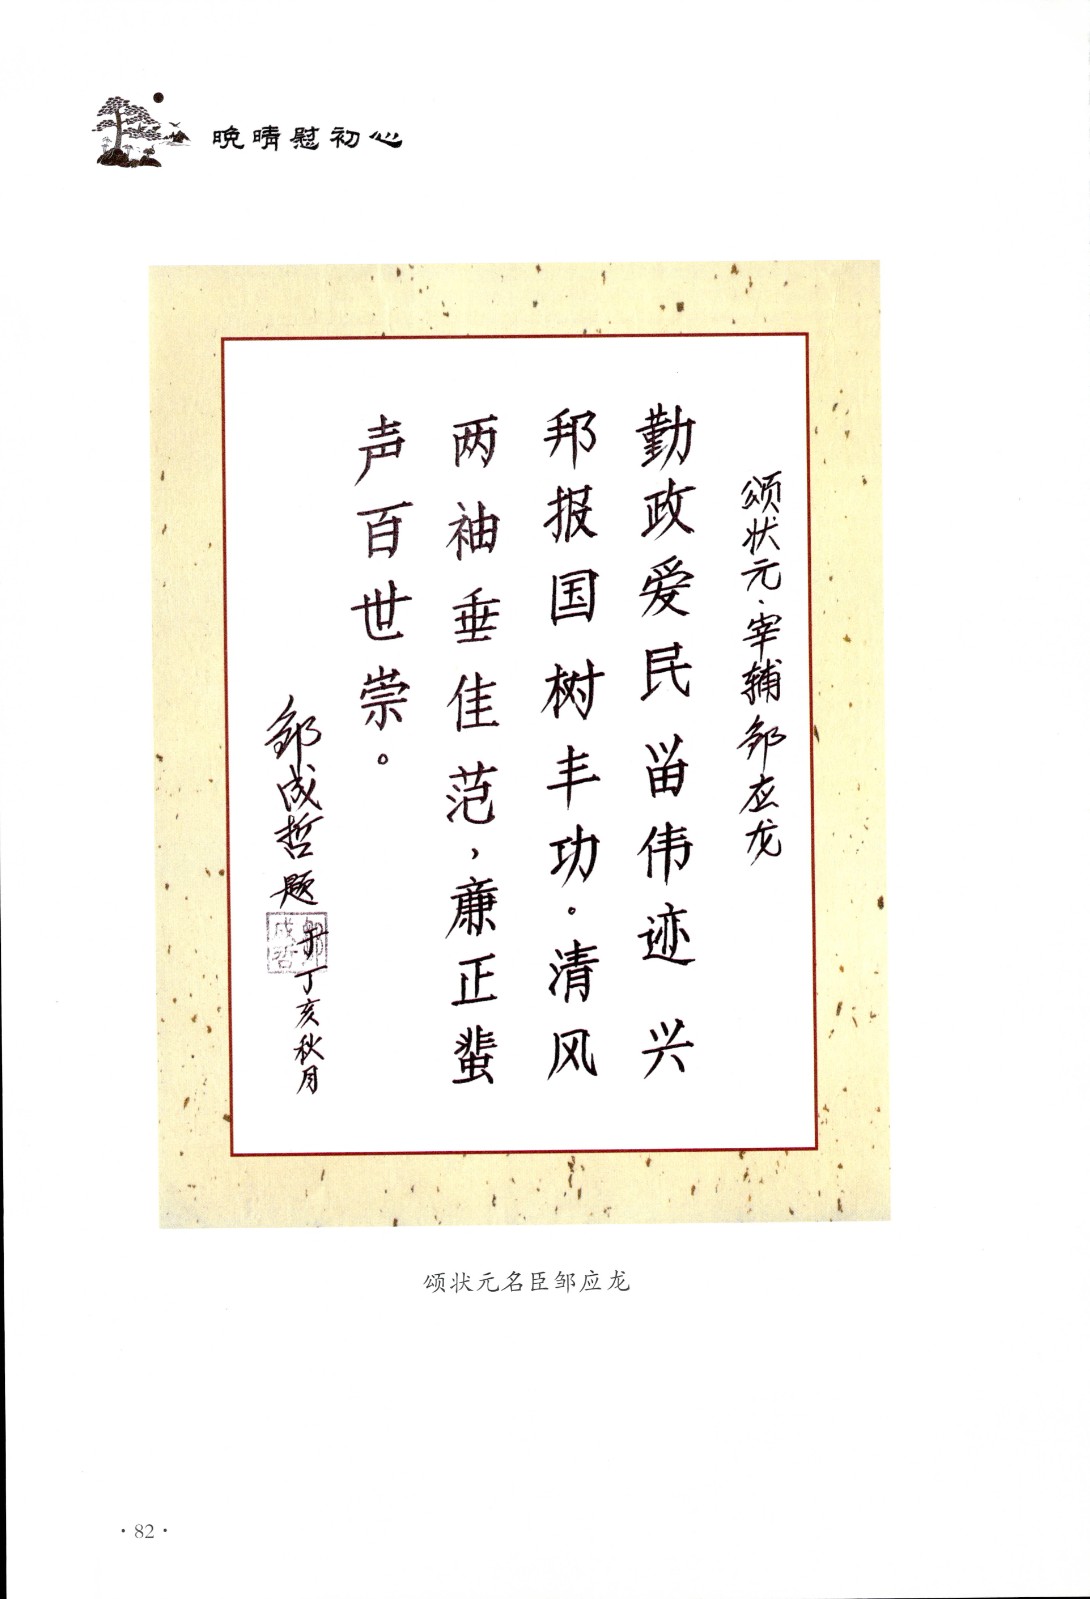 晚晴慰初心
颂状元·宰辅邹应龙
勤政爱民留伟迹兴
邦报国树丰功。清风
两袖垂佳范，廉正蜚
声百世崇。
邹成哲题
于丁亥秋月
鄒成哲
颂状元名臣邹应龙
·82·